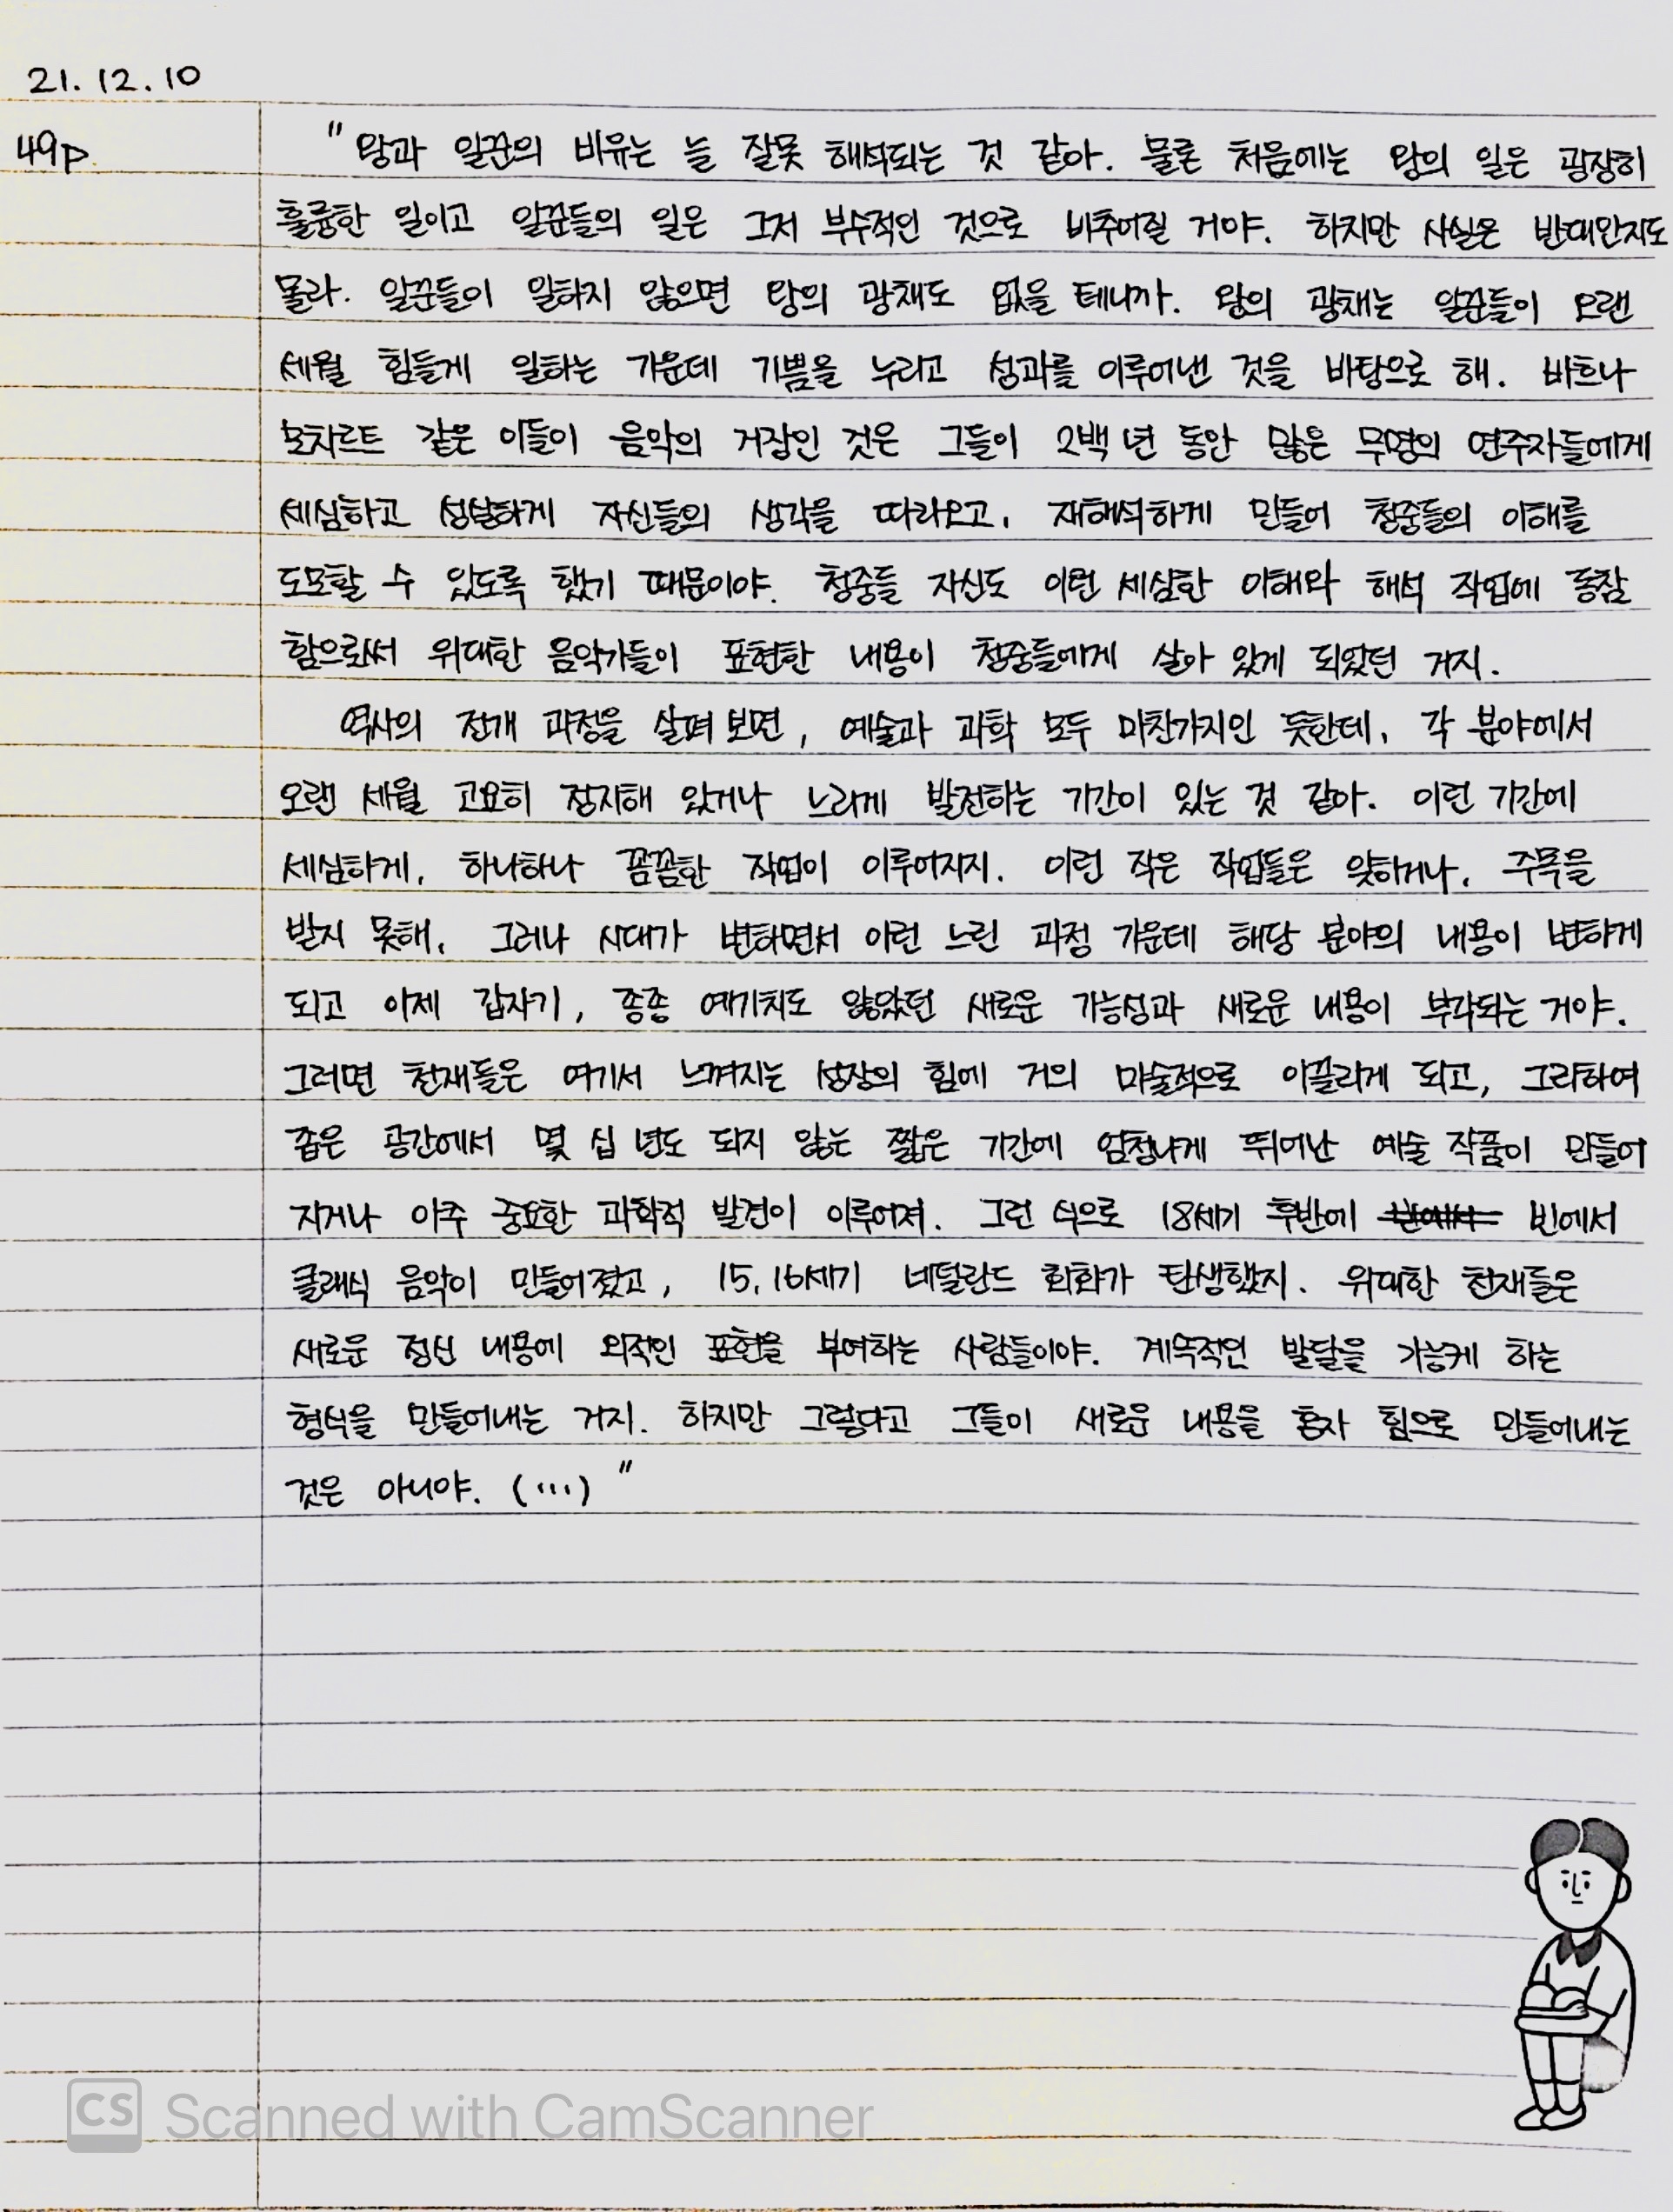 21.12.10
49p.
" 왕과 일꾼의 비유는 늘 잘못 해석되는 것 같아. 물론 처음에는 왕의 일은 굉장히
훌륭한 일이고 일꾼들의 일은 그저 부수적인 것으로 비추어질 거야. 하지만 사실은 반대인지도
몰라. 일꾼들이 일하지 않으면 왕의 광채도 없을 테니까. 왕의 광채는 일꾼들이 오랜
세월 힘들게 일하는 가운데 기쁨을 누리고 성과를 이루어낸 것을 바탕으로 해. 바흐나
모차르트 같은 이들이 음악의 거장인 것은 그들이 2백 년 동안 많은 무명의 연주자들에게
세심하고 성실하게 자신들의 생각을 따라오고, 재해석하게 만들어 청중들의 이해를
도모할 수 있도록 했기 때문이야. 청중들 자신도 이런 세심한 이해와 해석 작업에 동참
함으로써 위대한 음악가들이 표현한 내용이 청중들에게 살아 있게 되었던 거지.
역사의 전개 과정을 살펴 보면, 예술과 과학 모두 마찬가지인 듯한데, 각 분야에서
오랜 세월 고요히 정지해 있거나 느리게 발전하는 기간이 있는 것 같아. 이런 기간에
세심하게, 하나하나 꼼꼼한 작업이 이루어지지. 이런 작은 작업들은 잊히거나, 주목을
받지 못해. 그러나 시대가 변하면서 이런 느린 과정 가운데 해당 분야의 내용이 변하게
되고 이제 갑자기, 종종 예기치도 않았던 새로운 가능성과 새로운 내용이 부각되는 거야.
그러면 천재들은 여기서 느껴지는 성장의 힘에 거의 마술적으로 이끌리게 되고, 그리하여
좁은 공간에서 몇 십 년도 되지 않는 짧은 기간에 엄청나게 뛰어난 예술 작품이 만들어
지거나 아주 중요한 과학적 발견이 이루어져. 그런 식으로 18세기 후반에 빈에서
클래식 음악이 만들어졌고, 15,16세기 네덜란드 회화가 탄생했지. 위대한 천재들은
새로운 정신 내용에 외적인 표현을 부여하는 사람들이야. 계속적인 발달을 가능케 하는
형식을 만들어내는 거지. 하지만 그렇다고 그들이 새로운 내용을 혼자 힘으로 만들어내는
것은 아니야. (...) "
CS Scanned with CamScanner